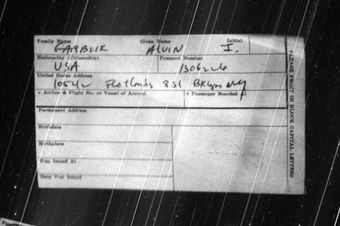 Family Name Given Name Initial
GARBUK ALVIN I.
Nationality (Citizenship) Passport Number
USA 130626
United States Address
Airline & Flight No. or Vessel of Arrival Passenger Boarded At
Permanent Address
Birthdate
Birthplace
Visa Issued At
Date Visa Issued
PLEASE PRINT IN BLOCK CAPITAL LETTERS